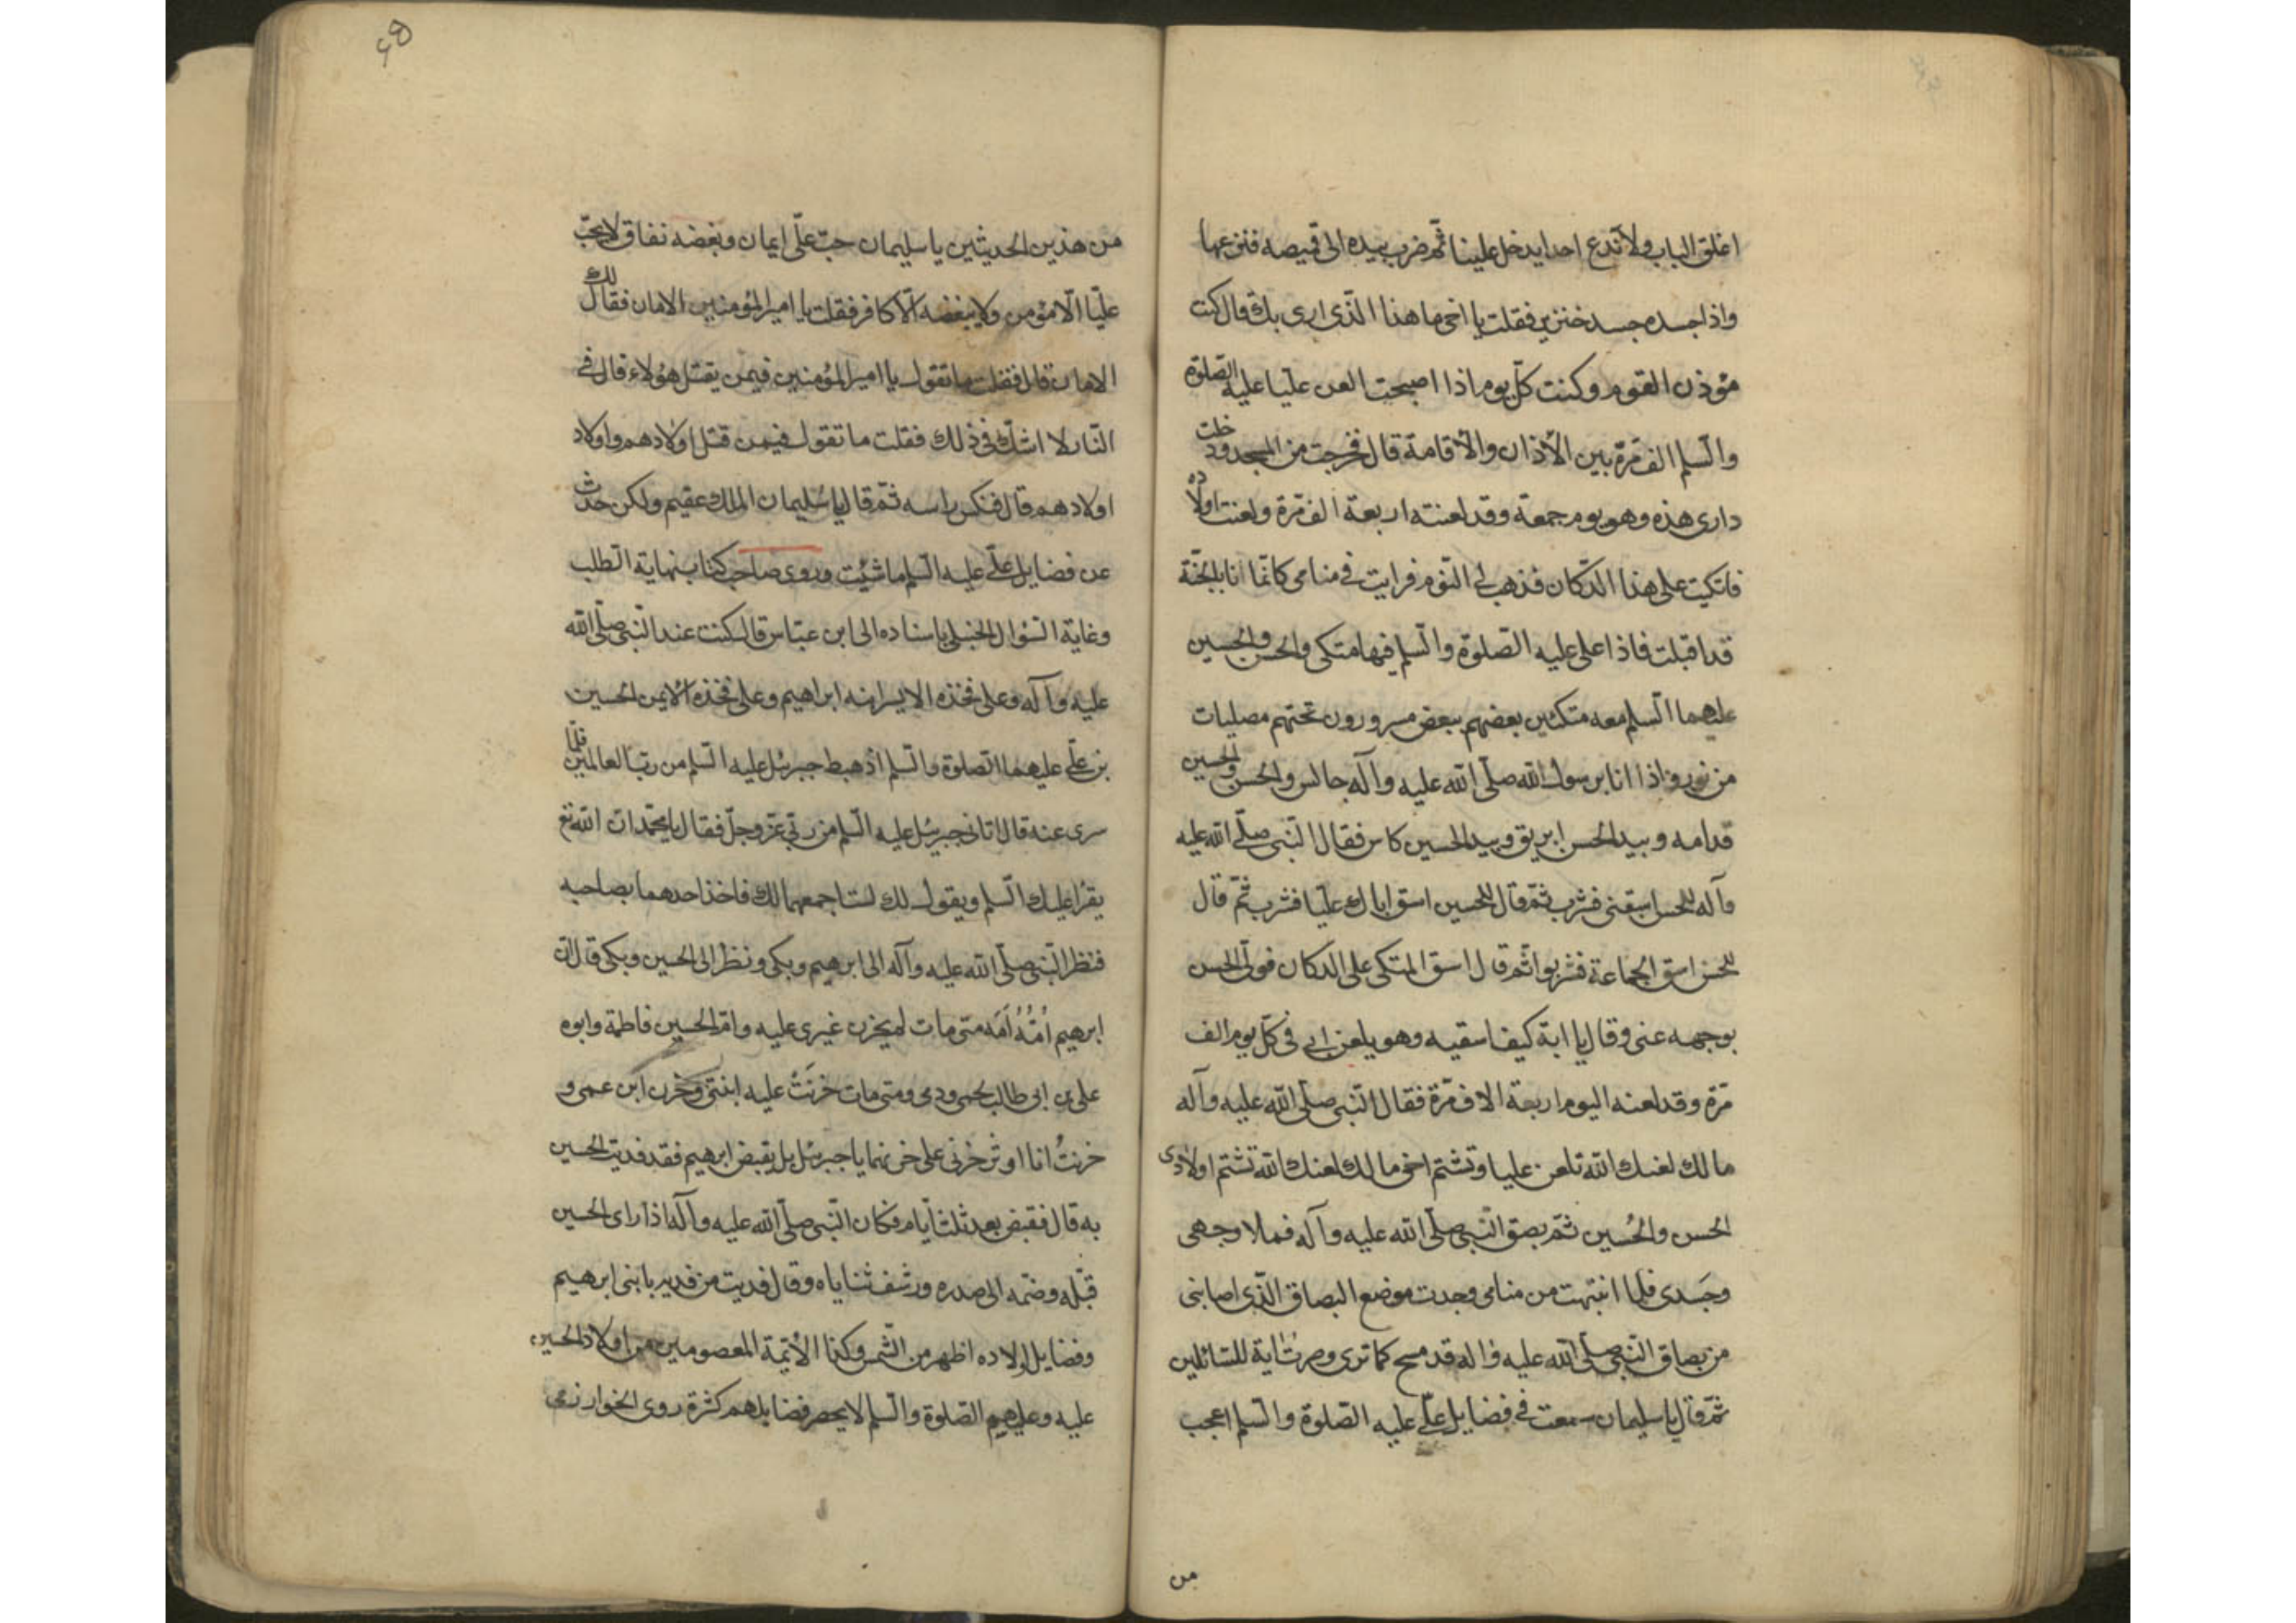 اغلق الباب ولا تدع احدا يدخل علينا ثم ضرب بيده الى قميصه فنزعها
واذا جسده جسد خنزير فقلت يا اخى ما هذا الّذى ارى بك قال كنت
مؤذن القوم وكنت كلّ يوم اذا اصبحت العن عليّا عليه الصّلوة
والسّلم الف مرّة بين الأذان والأقامة قال فخرجت من المسجد ودخلت
دارى هذه وهو يوم جمعة وقد لعنته اربعة الف مرّة ولعنت اولاده
فاتكيت على هذا الدّكان فذهب بى النّوم فرايت فى منامى كانّما انا بالجنّة
قد اقبلت فاذا على عليه الصّلوة والسّلم فيها متكى والحسن والحسين
عليهما السّلم معه متكئين بعضهم ببعض مسرورون تحتهم مصليات
من نور واذا انا برسول الله صلّى الله عليه وآله جالس والحسن والحسين
قدامه وبيد الحسن ابريق وبيد الحسين كاس فقال النّبى صلّى الله عليه
وآله للحسن اسقنى فشرب ثمّ قال للحسين اسق اباك عليّا فشرب ثمّ قال
للحسن اسق الجماعة فشربوا ثم قال اسق المتكى على الدكان فولّى الحسن
بوجهه عنى وقال يا ابة كيف اسقيه وهو يلعن ابى فى كلّ يوم الف
مرّة وقد لعنه اليوم اربعة الاف مرّة فقال النّبى صلّى الله عليه وآله
ما لك لعنك الله تلعن عليا وتشتم اخى ما لك لعنك الله تشتم اولادى
الحسن والحُسين ثمّ بصق النّبى صلّى الله عليه وآله فملا وجهى
وجسدى فلما انتبهت من منامى وجدت موضع البصاق الّذى اصابنى
من بصاق النّبى صلّى الله عليه واله قد مسخ كما ترى وصرت اية للسّائلين
ثمّ قال يا سليمان سمعت فى فضايل علّى عليه الصّلوة والسّلم اعجب
من
من هذين الحديثين يا سليمان حبّ علّى ايمان وبغضه نفاق لا يحبّ
عليّا الّا مؤمن ولا يبغضه الّا كافر فقلت يا امير المؤمنين الامان فقال لك
الامان قال فقلت ما تقول يا امير المؤمنين فيمن يقتل هؤلاء قال فى
النّار لا اشكّ فى ذلك فقلت ما تقول فيمن قتل اولادهم واولاد
اولادهم قال فنكس راسه ثمّ قال يا سُليمان الملك عقيم ولكن حدّث
عن فضايل علّى عليه السّلم ما شئت وروى صاحب كتاب نهاية الطّلب
وغاية السّؤال الحنبلى باسناده الى ابن عبّاس قال كنت عند النّبى صلّى الله
عليه وآله وعلى فخذه الايسر ابنه ابراهيم وعلى فخذه الأيمن الحسين
بن علّى عليهما الصّلوة والسّلم اذ هبط جبرئل عليه السّلم من ربّ العالمين فلمّا
سرى عنه قال اتانى جبرئل عليه السّلم من ربّى عزّ وجلّ فقال يا محّمد انّ الله تع
يقرا عليك السّلم ويقول لك لست اجمعهما لك فاخذ احدهما بصاحبه
فنظر النّبى صلّى الله عليه وآله الى ابرهيم وبكى ونظر الى الحسين وبكى قال انّ
ابرهيم اُمّهُ اَمَه متى مات لم يحزن غيرى عليه وامّ الحسين فاطمة وابوه
على بن ابى طالب لحمى ودمى ومتى مات حزنَتْ عليه ابنتى وحزن ابن عمى و
حزنتُ انا اوثر حزنى على حزنهما يا جبرئل بل يقبض ابرهيم فقد فديت الحسين
به قال فقبض بعد ثلث ايّام فكان النّبى صلّى الله عليه وآله اذا راى الحسين
قبّله وضمّه الى صدره ورشف ثناياه وقال فديت من فديته بابنى ابرهيم
وفضايل اولاده اظهر من الشّمس وكذا الأئمة المعصومين من اولاد الحسين
عليه وعليهم الصّلوة والسّلم لا يحصر فضايلهم كثرة روى الخوارزمى